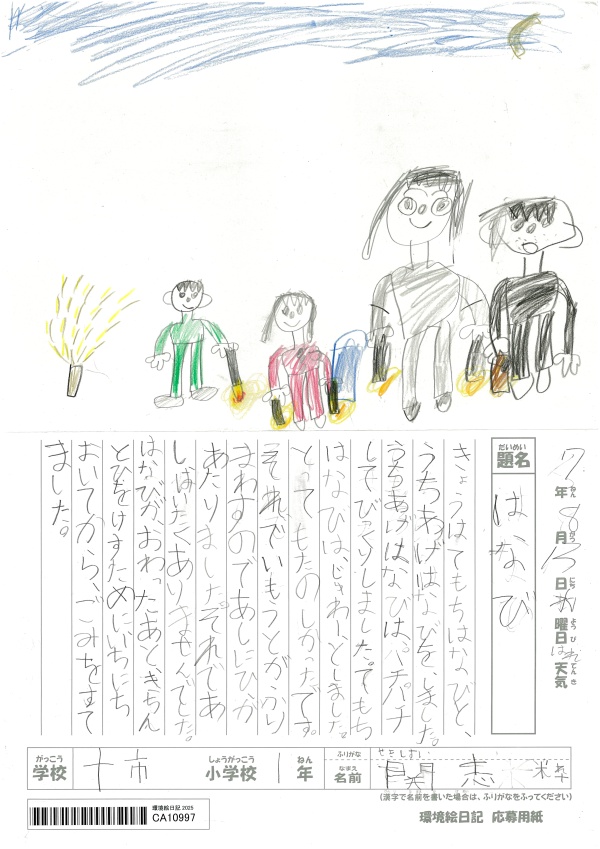 7年8月13日 曜日はれ天気
ねん がつ にち ようび てんき
だいめい
題名
はなび
きょうはてもちはなびと、
うちあげはなびを、しました。
うちあげはなびは、パチパチ
してびっくりしました。てもち
はなびは、じゅわーとしました。
とってもたのしかったです。
それでいもうとがふり
まわすのであしにひが
あたりました。それであ
しばたくありませんでした。
はなびがおわったあと、きちん
とひをけすためにいちにち
おいてから、ごみをすて
ました。
がっこう
学校
十市
しょうがっこう
小学校
1
ねん
年
ふりがな
なまえ
名前
関
(漢字で名前を書いた場合は、ふりがなをふってください)
環境絵日記2025
CA10997
環境絵日記 応募用紙